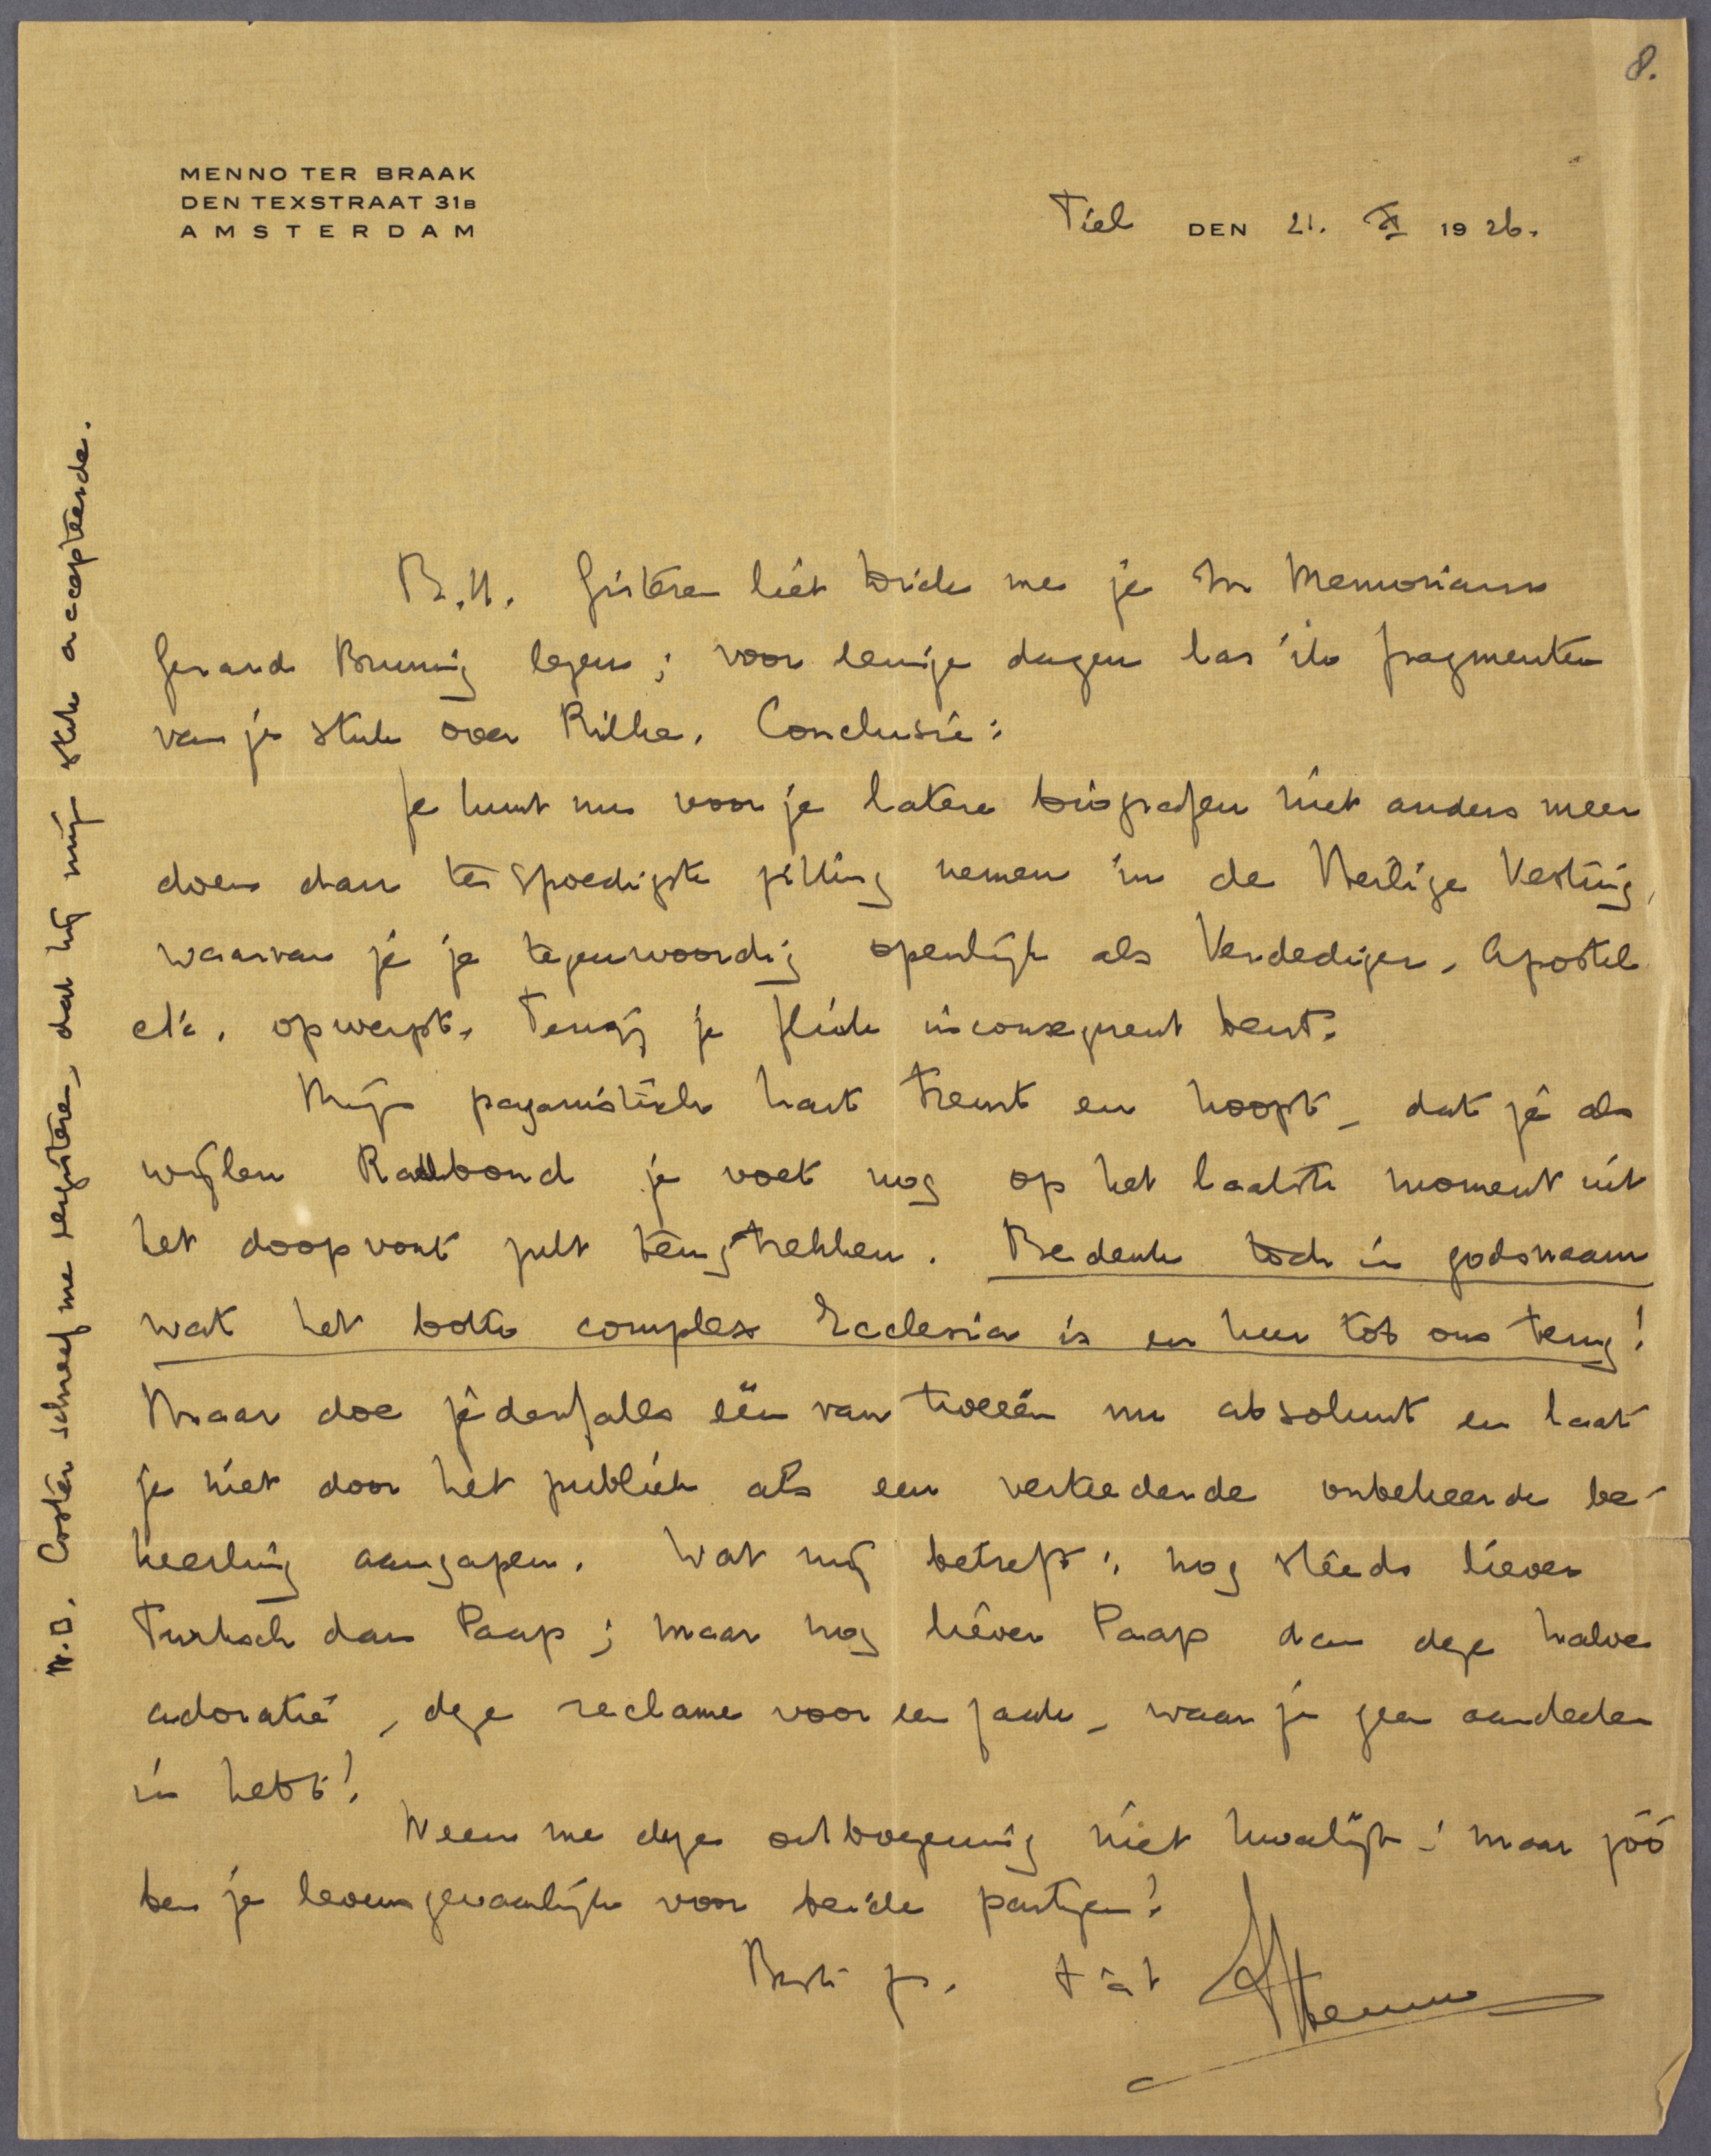 8.
MENNO TER BRAAK
DEN TEXSTRAAT 31B
AMSTERDAM
Tiel DEN 21. XI 1926.
B.H. Gisteren liet me je In Memoriam
Gerard Bruning lezen; voor eenige dagen las ik fragmenten
van je stuk over Rilke. Conclusie:
Je kunt nu voor je latere biografen niet anders meer
doen dan ten spoedigste zitting nemen in de Heilige Vesting,
waarvan je je tegenwoordig openlijk als Verdediger, Apostel
etc. opwerpt, tenzij je flink inconsequent bent.
Mijn paganistisch hart treurt en hoopt, dat je als
wijlen Radboud je voet nog op het laatste moment uit
het doopvont zult terugtrekken. Bedenk toch in godsnaam
wat het botte complex Ecclesia is en keer tot ons terug!
Maar doe jedenfalls één van tweeën nu absoluut en laat
je niet door het publiek als een verteederde onbekeerde be-
keerling aangapen. Wat mij betreft: nog steeds liever
Turksch dan Paap; maar nog liever Paap dan deze halve
adoratie, deze reclame voor een zaak, waar je geen aandeelen
in hebt!
Neem me deze ontboezeming niet kwalijk; maar zóó
ben je levensgevaarlijk voor beide partijen!
Beste gr. t à t Menno
N.B. Coster schreef me gisteren, dat hij mijn stuk accepteerde.